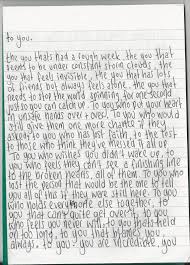 to you.
the you thats had a rough week. the you that
seems to be under constant storm clouds, the
you that feels invisible, the you that has lots
of friends but always feels alone. the you that
needs to stop the world spinning for one second
just so you can catch up. To you who put your heart
in unsafe hands over + over. To you who would
still give them one more chance if they
asked. to you who has lost faith, to the lost
to those who think they've messed it all up.
To you who wishes you didn't wake up, to
you who feels they can't see a finishing line
to the broken hearts, all of them. To you who
lost the person that would be the one to tell
you all of this if they were still here. To you
who holds everyone else together, to
you that can't quite get over it, to you
who feels you never will, to you that held
on so long, to you that thinks you
always, to you. you are incredible, you